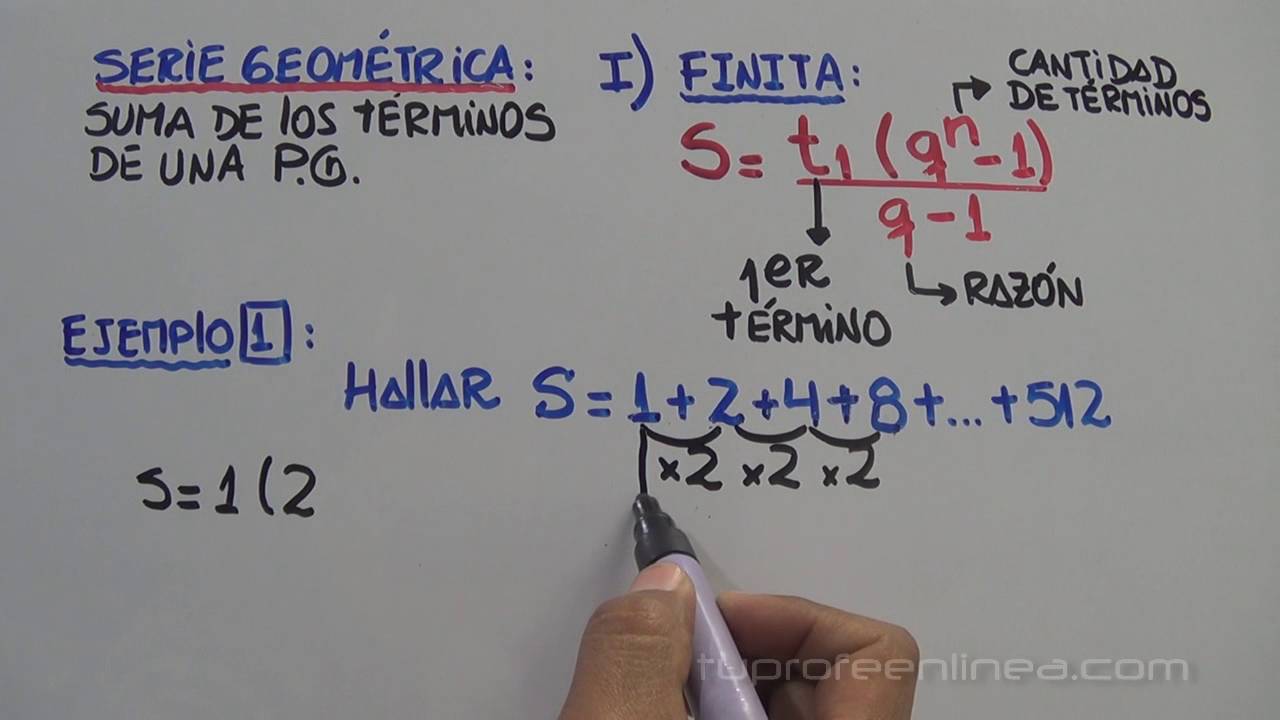 SERIE GEOMÉTRICA:
SUMA DE lOS TÉRMINOS
DE UNA P.G.
I) FINITA:
CANTIDAD
DE TÉRMINOS
S = t₁ (qⁿ - 1)
q - 1
1ER
TÉRMINO
RAZÓN
EJEMPlO 1 :
HAllAR S = 1 + 2 + 4 + 8 + ... + 512
×2 ×2 ×2
S = 1 (2
tuprofeenlinea.com